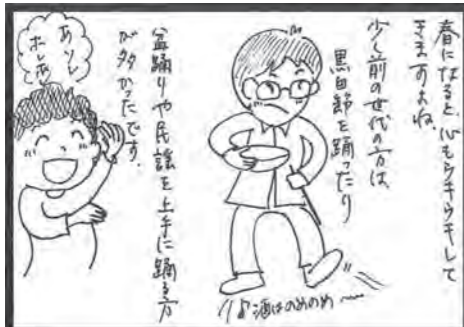 春になると、心もウキウキして
きますよね。
少し前の世代の方は
黒田節を踊ったり
盆踊りや民謡を上手に踊る方
が多かったです。
あ、ソレ
ホレ
♪酒はのめのめ〜